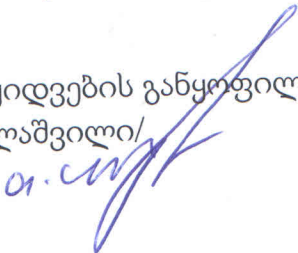 იდვების განყოფილ
ლაშვილი/